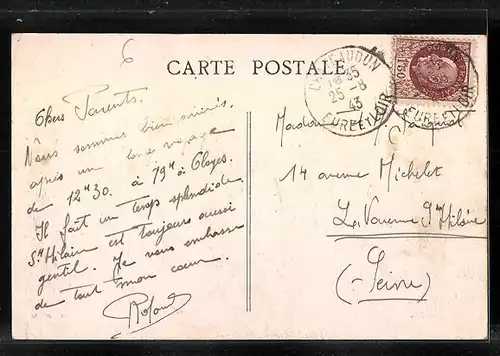 6
CARTE POSTALE
CHATEAUDUN
18 35
25 -8
43
EURE ET LOIR
EURE ET LOIR
1F50
Chers Parents.
Nous sommes bien arrivés
après un voyage
de 12H30. à 19H à Cloyes.
Il fait un temps splendide
St Hilaire est toujours aussi
gentil. Je vous embrasse
de tout mon coeur.
Roland
Madame
14 avenue Michelet
La Varenne St Hilaire
(Seine)